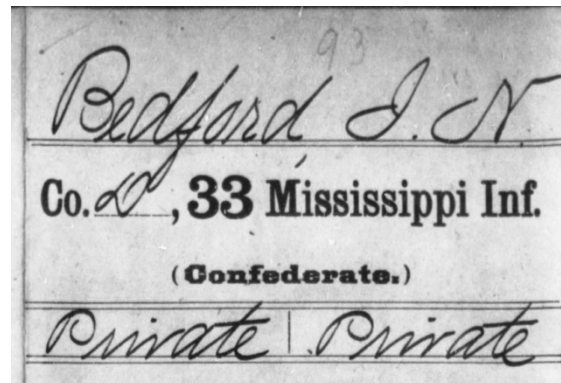 93
Bedford, I. N.
Co. D, 33 Mississippi Inf.
(Confederate.)
Private | Private